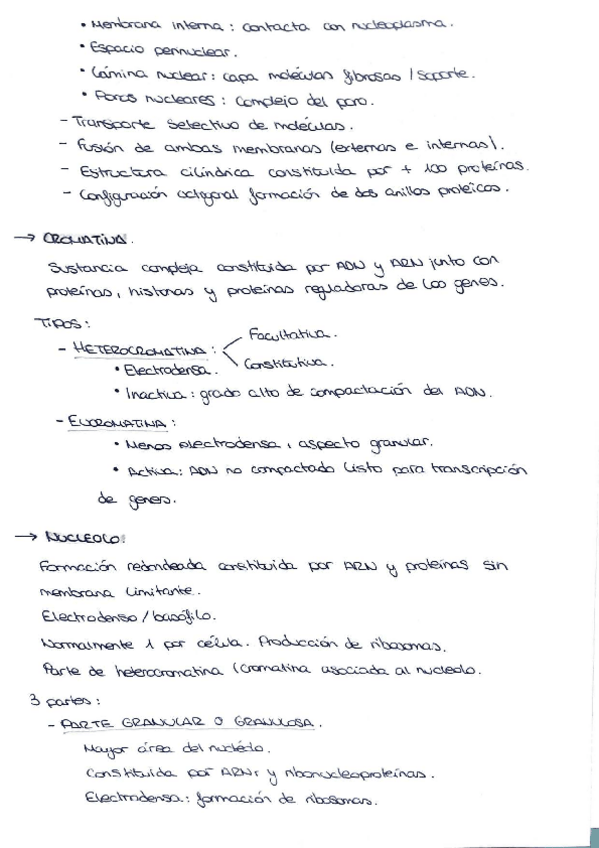 • Membrana interna : contacta con nucleoplasma.
• Espacio perinuclear.
• Lámina nuclear : capa moléculas fibrosas / Soporte.
• Poros nucleares : Complejo del poro.
- Transporte selectivo de moléculas.
- Fusión de ambas membranas (externas e internas).
- Estructura cilíndrica constituida por + 100 proteínas.
- Configuración octogonal formación de dos anillos proteicos.
→ CROMATINA.
Sustancia compleja constituida por ADN y ARN junto con
proteínas, histonas y proteínas reguladoras de los genes.
TIPOS :
- HETEROCROMATINA : Facultativa.
• Electrodensa. Constitutiva.
• Inactiva : grado alto de compactación del ADN.
- EUCROMATINA :
• Menos electrodensa, aspecto granular.
• Activa : ADN no compactado listo para transcripción
de genes.
→ NUCLEOLO :
Formación redondeada constituida por ARN y proteínas sin
membrana limitante.
Electrodenso / basófilo.
Normalmente 1 por célula. Producción de ribosomas.
Parte de heterocromatina (cromatina asociada al nucleolo.
3 partes :
- PARTE GRANULAR O GRANULOSA.
Mayor área del nucléolo.
Constituida por ARNr y ribonucleoproteínas.
Electrodensa : formación de ribosomas.